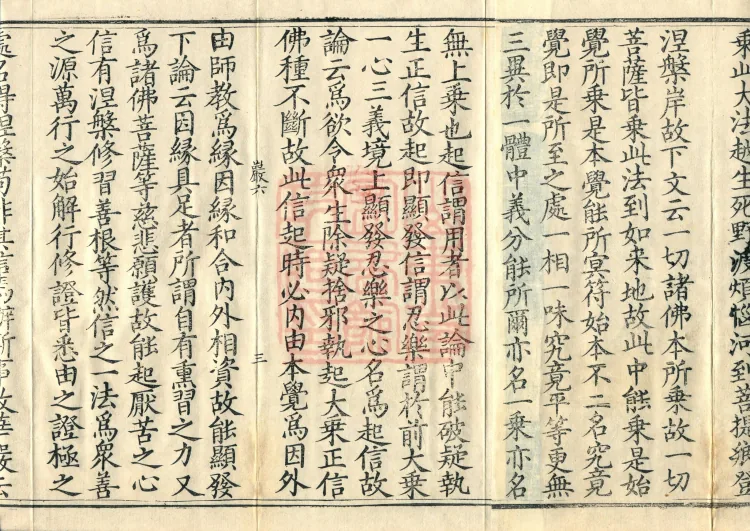 乘此大法越生死野渡煩惱河到菩提鄉登
涅槃岸故下文云一切諸佛本所乘故一切
菩薩皆乘此法到如来地故此中能乘是始
覺所乘是本覺能所冥符始本不二名究竟
覺即是所至之處一相一味究竟平等更無
三異於一體中義分能所爾亦名一乘亦名
無上乘也起信謂用者以此論中能破疑執
生正信故起即顯發信謂忍樂謂於前大乘
一心三義境上顯發忍樂之心名爲起信故
論云爲欲令衆生除疑捨邪執起大乘正信
佛種不斷故此信起時必內由本覺爲因外
巖六
三
由師教爲緣因緣和合內外相資故能顯發
下論云因緣具足者所謂自有熏習之力又
爲諸佛菩薩等慈悲願護故能起厭苦之心
信有涅槃修習善根等然信之一法爲衆善
之源萬行之始解行修證皆悉由之證極之
處名得涅槃